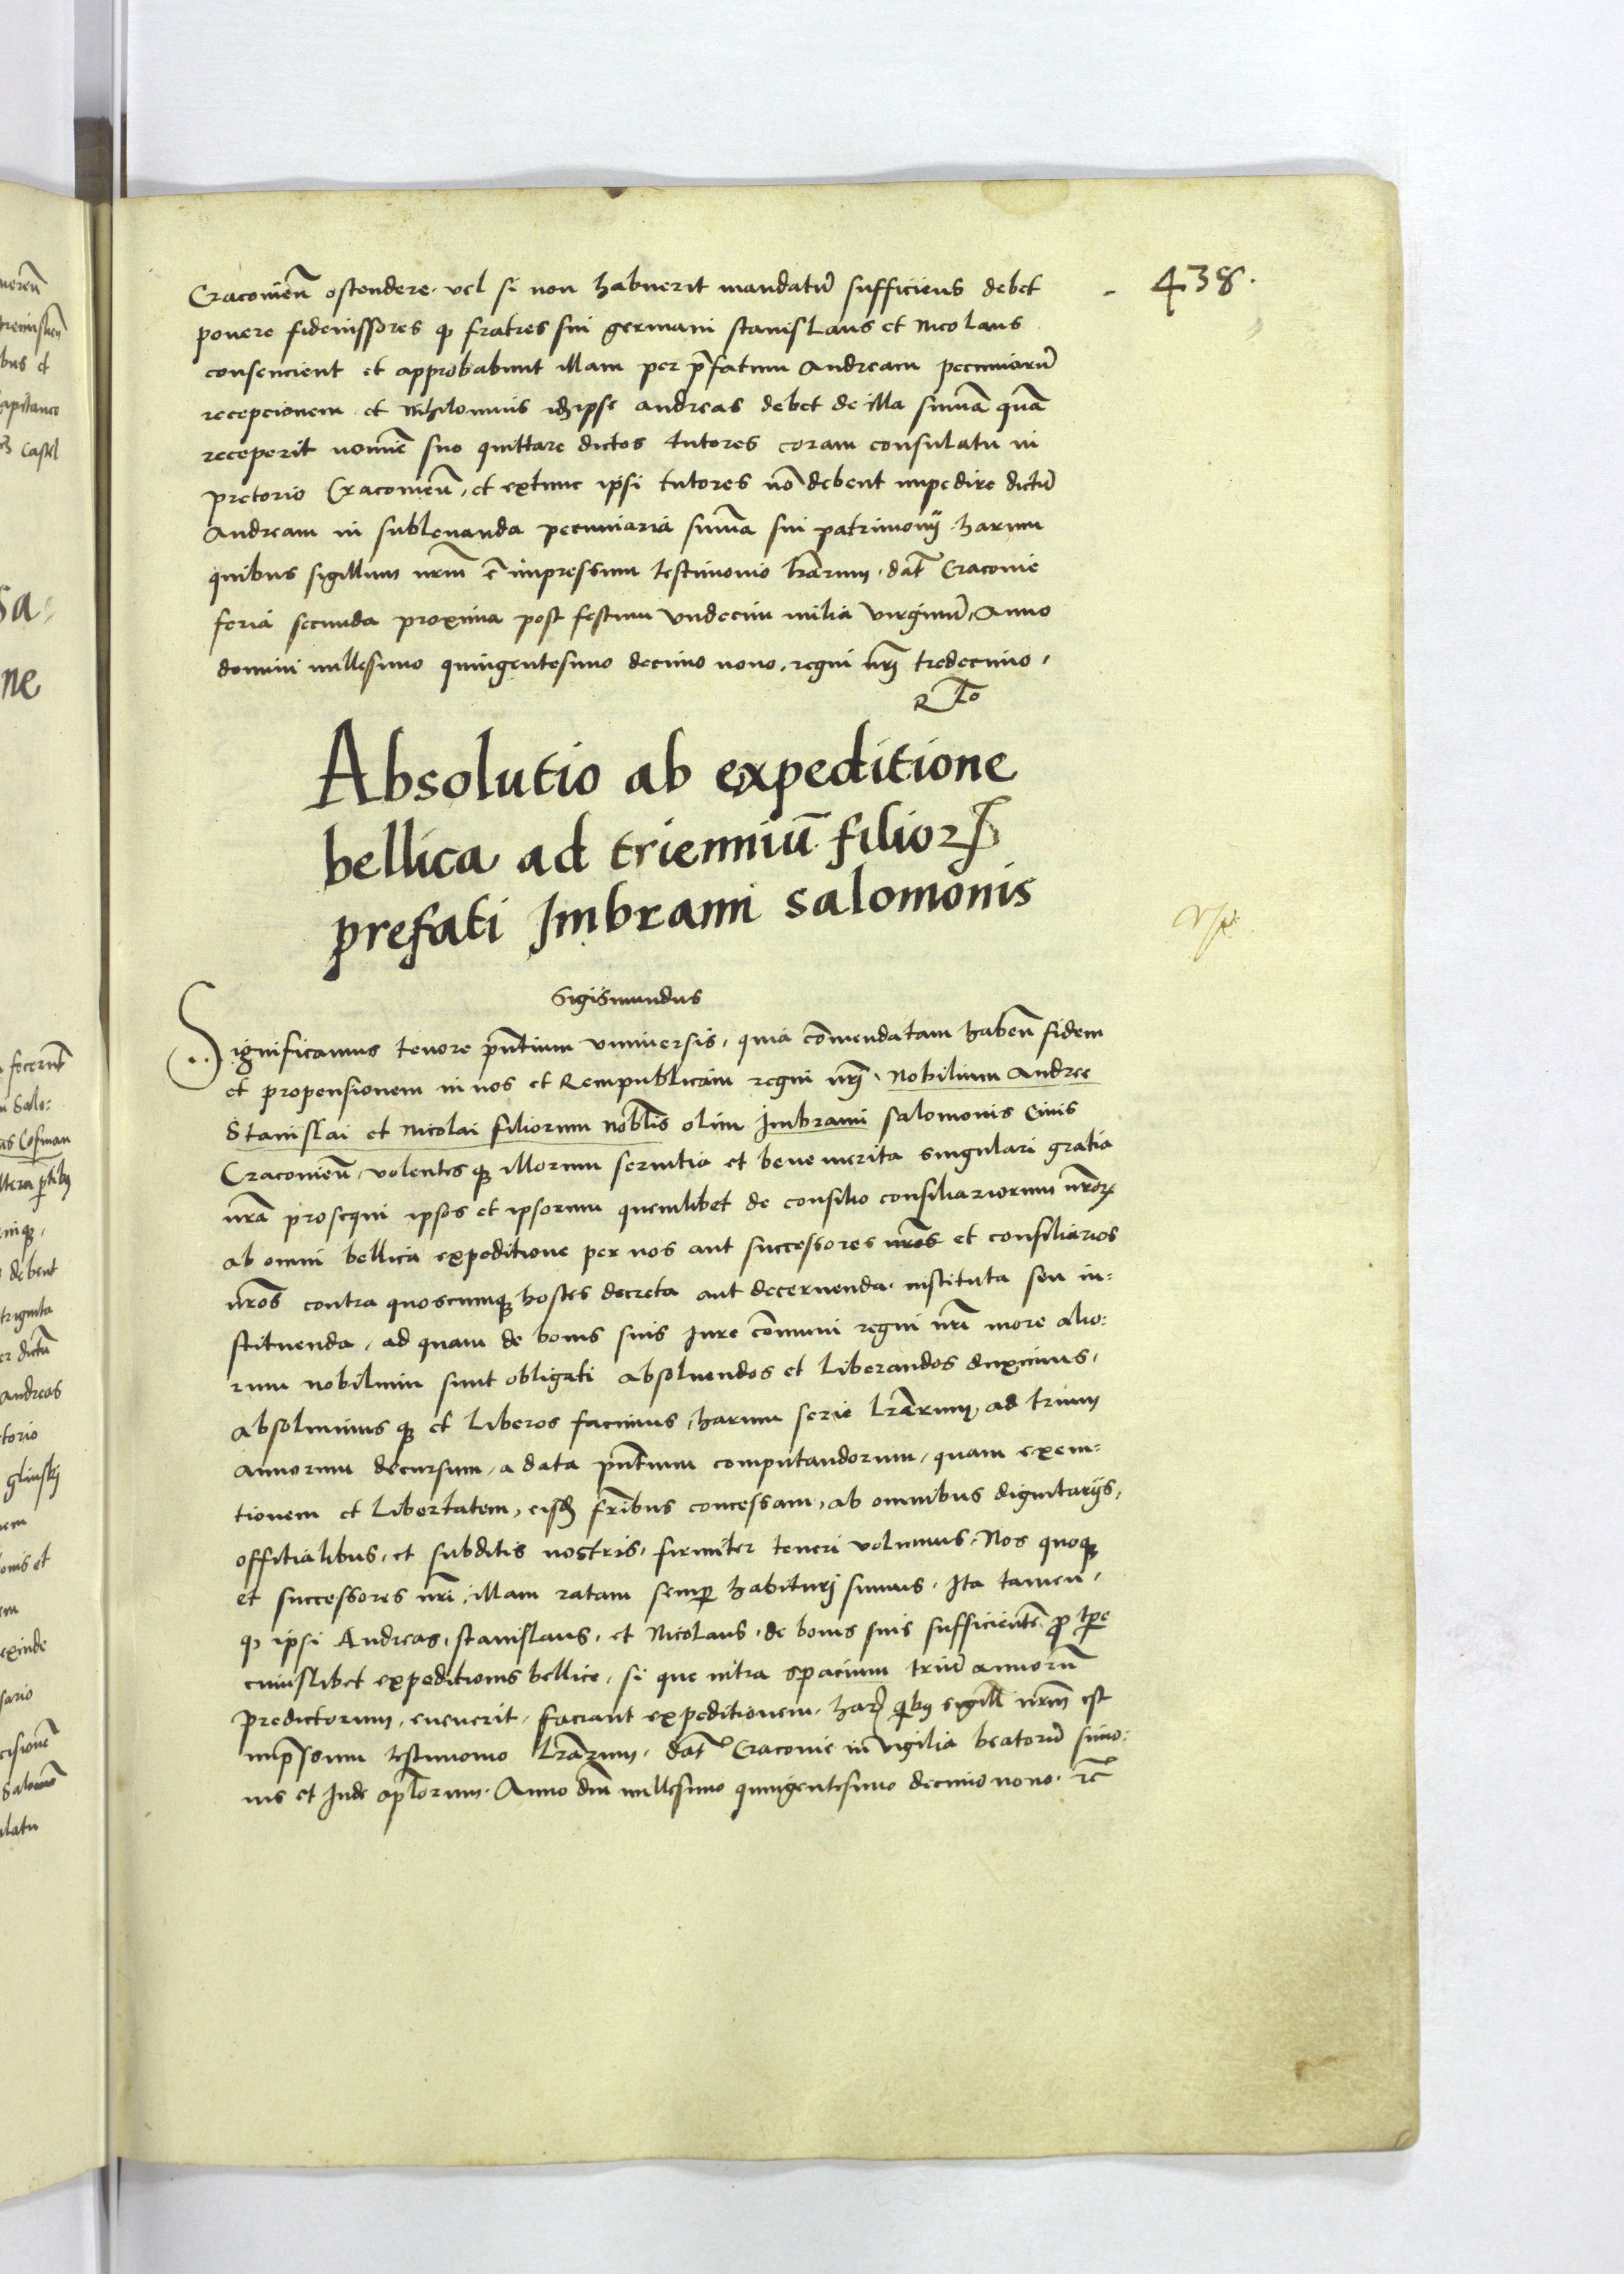 438.
Cracovieñ ostendere. vel si non habuerit mandatũ sufficiens debet
ponere fideiussores ꝙ fratres sui germani stanislaus et Nicolaus
consencient et approbabunt illam per p̃fatum Andream pecuniarũ
recepcionem et nihilominus idẽ ipse andreas debet de illa summã quã
receperit nomĩe suo quittare dictos tutores coram consulatu in
pretorio Cracovieñ, et extunc ipsi tutores nõ debent impedire dictũ
Andream in sublevanda pecuniaria sum̃a sui patrimonij. harum
quibus sigillum nr̃m ẽ impressum testimonio lr̃arum. dat̃ Cracovie
feria secunda proxima post festum Undecim milia virginũ, Anno
domini millesimo quingentesimo decimo nono, regni nr̃j tredecimo,
R T̃o
Absolutio ab expeditione
bellica ad trienniũ filioꝝ
prefati Imbrami salomonis
Sigismundus
Significamus tenore pñtium universis, quia cõmendatam habeñ fidem
et propensionem in nos et Rempublicam regni nr̃j. Nobilium Andree
Stanislai et Nicolai filiorum nobl̃is olim Imbrami Salomonis Civis
Cracovieñ, volentesꝙ illorum servitia et bene merita singulari gratia
nr̃a prosequi ipsos et ipsorum quemlibet de consilio consiliariorum nr̃orꝝ
ab omni bellica expeditione per nos aut successores nr̃os et consiliarios
nr̃os contra quoscumqꝫ hostes decreta aut decernenda. instituta seu in:
stituenda, ad quam de bonis suis Iure cõmuni regni nr̃i more alio:
rum nobilium sunt obligati absolvendos et liberandos duximus,
absolvimusqꝫ et liberos facimus, harum serie lr̃arum, ad trium
annorum decursum, a data pñtium computandorum, quam exem=
tionem et libertatem, eisd̃ fr̃ibus concessam, ab omnibus dignitarijs,
offitialibus, et subditis nostris, firmiter teneri volumus. Nos quoqꝫ
et successores nr̃i, illam ratam semꝑ habiturj sumus. Ita tamen,
ꝙ ipsi Andreas, stanislaus, et Nicolaus, de bonis suis sufficientẽ ꝓ tꝑe
cuiuslibet expeditionis bellice, si que intra spacium triũ annorũ
predictorum, evenerit, faciant expeditionem. harꝝ qibꝯ sigill̃ nr̃m est
imp̃ssum testimonio lr̃arum. dat̃ Cracovie in vigilia beatorũ Simo:
nis et Jude apl̃orum. Anno dñi millesimo quingentesimo decimo nono. rẽ